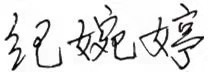 纪婉婷